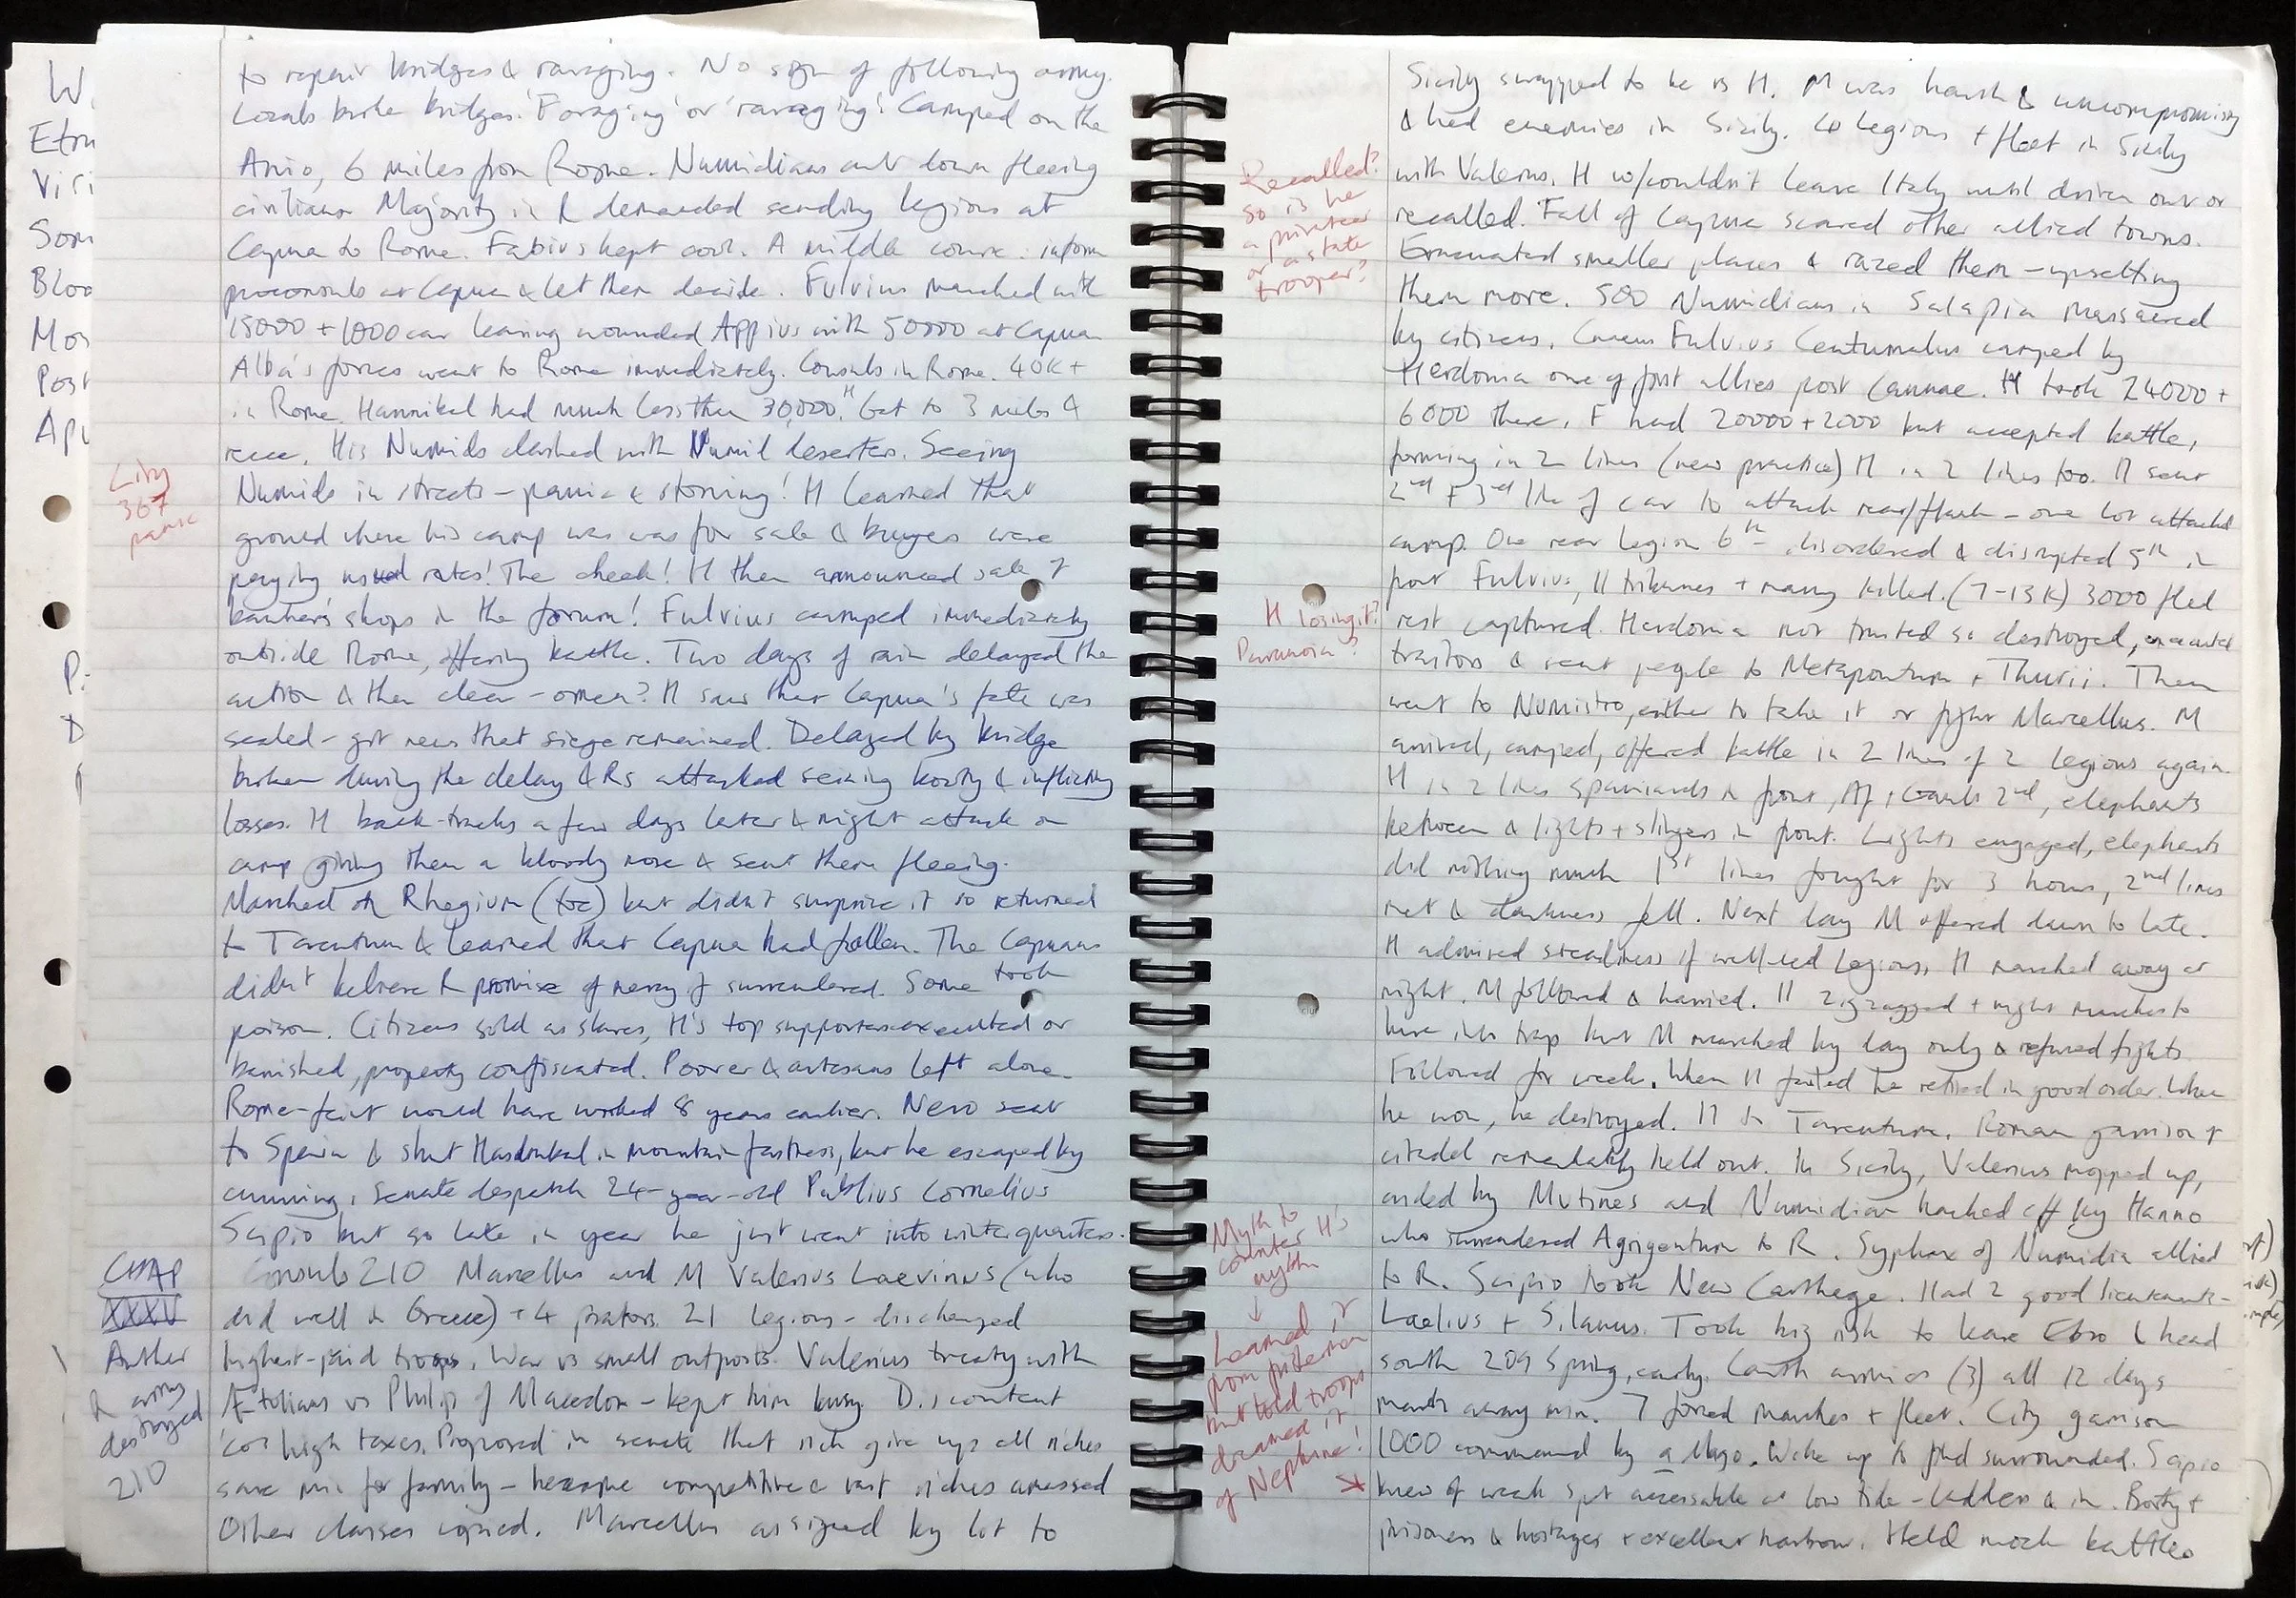 W.
Etru
Viri
Som
Bloo
Mor
Post
Apu
to repair bridges & ravaging. No sign of following army.
Locals broke bridges. 'Foraging' or 'ravaging'! Camped on the
Anio, 6 miles from Rome. Numidians cut down fleeing
civilians Majority in R demanded sending legions at
Capua to Rome. Fabius kept cool. A middle course: inform
proconsuls at Capua & let them decide. Fulvius marched with
15000 + 1000 cav leaving wounded Appius with 50000 at Capua
Alba's forces went to Rome immediately. Consuls in Rome. 40K+
in Rome. Hannibal had much less than 30,000. H Got to 3 miles &
recce. His Numids clashed with Numid deserters. Seeing
City
367
panic
Numids in streets – panic & stoning! H learned that
ground where his camp was was for sale & buyers were
paying usual rates! The cheek! H then announced sale of
banker's shops in the forum! Fulvius camped immediately
outside Rome, offering battle. Two days of rain delayed the
action & then clear – omen? H saw that Capua's fate was
sealed – got news that siege remained. Delayed by bridge
broken during the delay & Rs attacked seizing booty & inflicting
losses. H back-tracks a few days later & night attack on
camp giving them a bloody nose & sent them fleeing.
Marched on Rhegium (toe) but didn't surprise it so returned
to Tarentum & learned that Capua had fallen. The Capuans
didn't believe R promise of mercy if surrendered. Some took
poison. Citizens sold as slaves, H's top supporters executed or
banished, property confiscated. Poorer & artisans left alone.
Rome-feint would have worked 8 years earlier. Nero sent
to Spain & shut Hasdrubal in mountain fastness, but he escaped by
cunning. Senate despatch 24-year-old Publius Cornelius
Scipio but so late in year he just went into winter quarters.
CHAP
XXXV
Another
R army
destroyed
210
Consuls 210 Marcellus and M Valerius Laevinus (who
did well in Greece) + 4 praetors. 21 legions – discharged
highest-paid troops. War vs small outposts. Valerius treaty with
Ætolians vs Philip of Macedon – kept him busy. Discontent
'cos high taxes. Proposed in senate that rich give up all riches
save min for family – became competitive & vast riches amassed
Other classes copied. Marcellus assigned by lot to
Sicily swapped to be vs H. M was harsh & uncompromising
& had enemies in Sicily. 4 legions + fleet in Sicily
Recalled?
so is he
a privateer
or a state
trooper?
with Valerius. H w/couldn't leave Italy until driven out or
recalled. Fall of Capua scared other allied towns.
Evacuated smaller places & razed them – upsetting
them more. 500 Numidians in Salapia massacred
by citizens. Cnaeus Fulvius Centumalus camped by
Herdonia one of first allies post Cannae. H took 24000 +
6000 there. F had 20000 + 2000 but accepted battle,
forming in 2 lines (new practice) H in 2 lines too. H sent
2nd + 3rd line of cav to attack rear/flank – one lot attacked
camp. One rear legion 6th disordered & disrupted 5th in
front Fulvius, 11 tribunes + many killed. (7–13K) 3000 fled
H losing it?
Paranoia?
rest captured. Herdonia not trusted so destroyed, executed
traitors & sent people to Metapontum + Thurii. Then
went to Numistro, either to take it or fight Marcellus. M
arrived, camped, offered battle in 2 lines of 2 legions again.
H in 2 lines Spaniards in front, Af, Gauls 2nd, elephants
between & lights + slingers in front. Lights engaged, elephants
did nothing much 1st lines fought for 3 hours, 2nd lines
met & darkness fell. Next day M offered dawn to late.
H admired steadiness of well-led legions. H marched away at
night. M followed & harried. H zigzagged + night marches to
lure into trap but M marched by day only & refused fights
Followed for week. When H failed he retired in good order. When
he won, he destroyed. H to Tarentum. Roman garrison of
citadel remarkably held out. In Sicily, Valerius mopped up,
aided by Mutines and Numidian hacked off by Hanno
Myth to
counter H's
myth
↓
Learned it
from fisherman
but told troops
dreamed it
of Neptune!
who surrendered Agrigentum to R. Syphax of Numidia allied
to R. Scipio took New Carthage. Had 2 good lieutenants –
Laelius + Silanus. Took big risk to leave Ebro & head
south 209 Spring, early. Carth armies (3) all 12 days
march away min. 7 forced marches + fleet. City garrison
1000 command by a Mago. Woke up to find surrounded. Scipio
knew of weak spot accessable at low tide – ladders & in. Booty +
prisoners & hostages + excellent harbour. Held mock battles